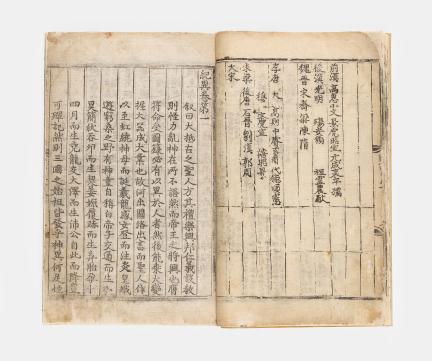 前漢 高惠小文景虎昭宣元成哀平孺
魏晉宋齊梁陳隋
朱梁 後唐 石晉 劉漢 郭周
大宋
紀異卷第一
叙曰大抵古之聖人方其禮樂興邦仁義設教
則怪力亂神在所不語然而帝王之將興也膺
符命受圖籙必有以異於人者然後能乘大變
握大器成大業也故河出圖洛出書而聖人作
以至虹繞神母而誕羲龍感女登而生炎皇娥
遊窮桑之野有神童自稱白帝子交通而生小
昊簡狄吞卵而生契姜嫄履跡而生弃胎孕十
四月而生堯龍交大澤而生沛公自此而降豈
可殫記然則三國之始祖皆發乎神異何足怪